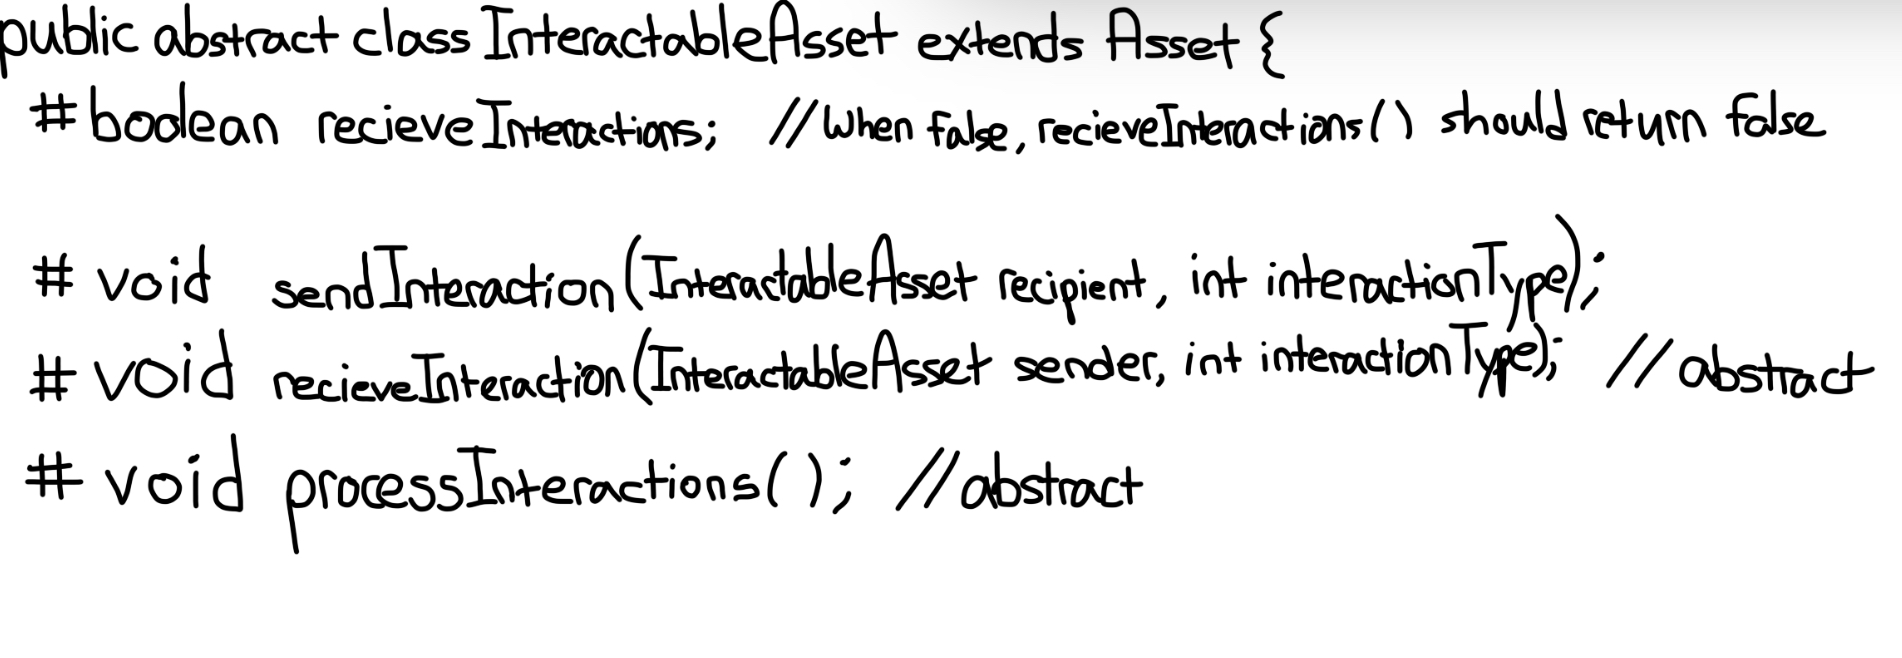 public abstract class InteractableAsset extends Asset {
# boolean recieveInteractions; //When false, recieveInteractions() should return false
# void sendInteraction(InteractableAsset recipient, int interactionType);
# void recieveInteraction(InteractableAsset sender, int interactionType); //abstract
# void processInteractions(); //abstract